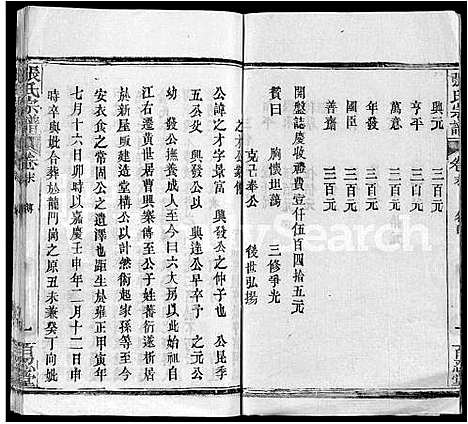 張氏宗譜
卷末
興元 三百元
亨平 三百元
萬意 三百元
年發 三百元
國臣 三百元
善齋 三百元
開盤誌慶收禮費壹仟伍百四拾五元
贊曰 胸懷坦蕩 三修爭光
克己奉公 後世弘揚
之才公家傳
公諱之才字景富 興發公之仲子也 公昆季
五公殁 興發公以 興達公早卒子 之元公
幼 發公撫養成人至今曰六大房以此始祖自
江右遷黄世居曹興寨傳至公子姓蕃衍遂析居
於新屋塆建造堂構公則巍然銜起家孫等至今
安衣食之常固公之遺澤也距生於雍正甲寅年
七月十六日卯時以嘉慶壬申年二月十二日申
時卒與妣合葬於龍門崗之原丑未兼癸丁向妣
張氏宗譜
卷末
百忍堂
百忍堂